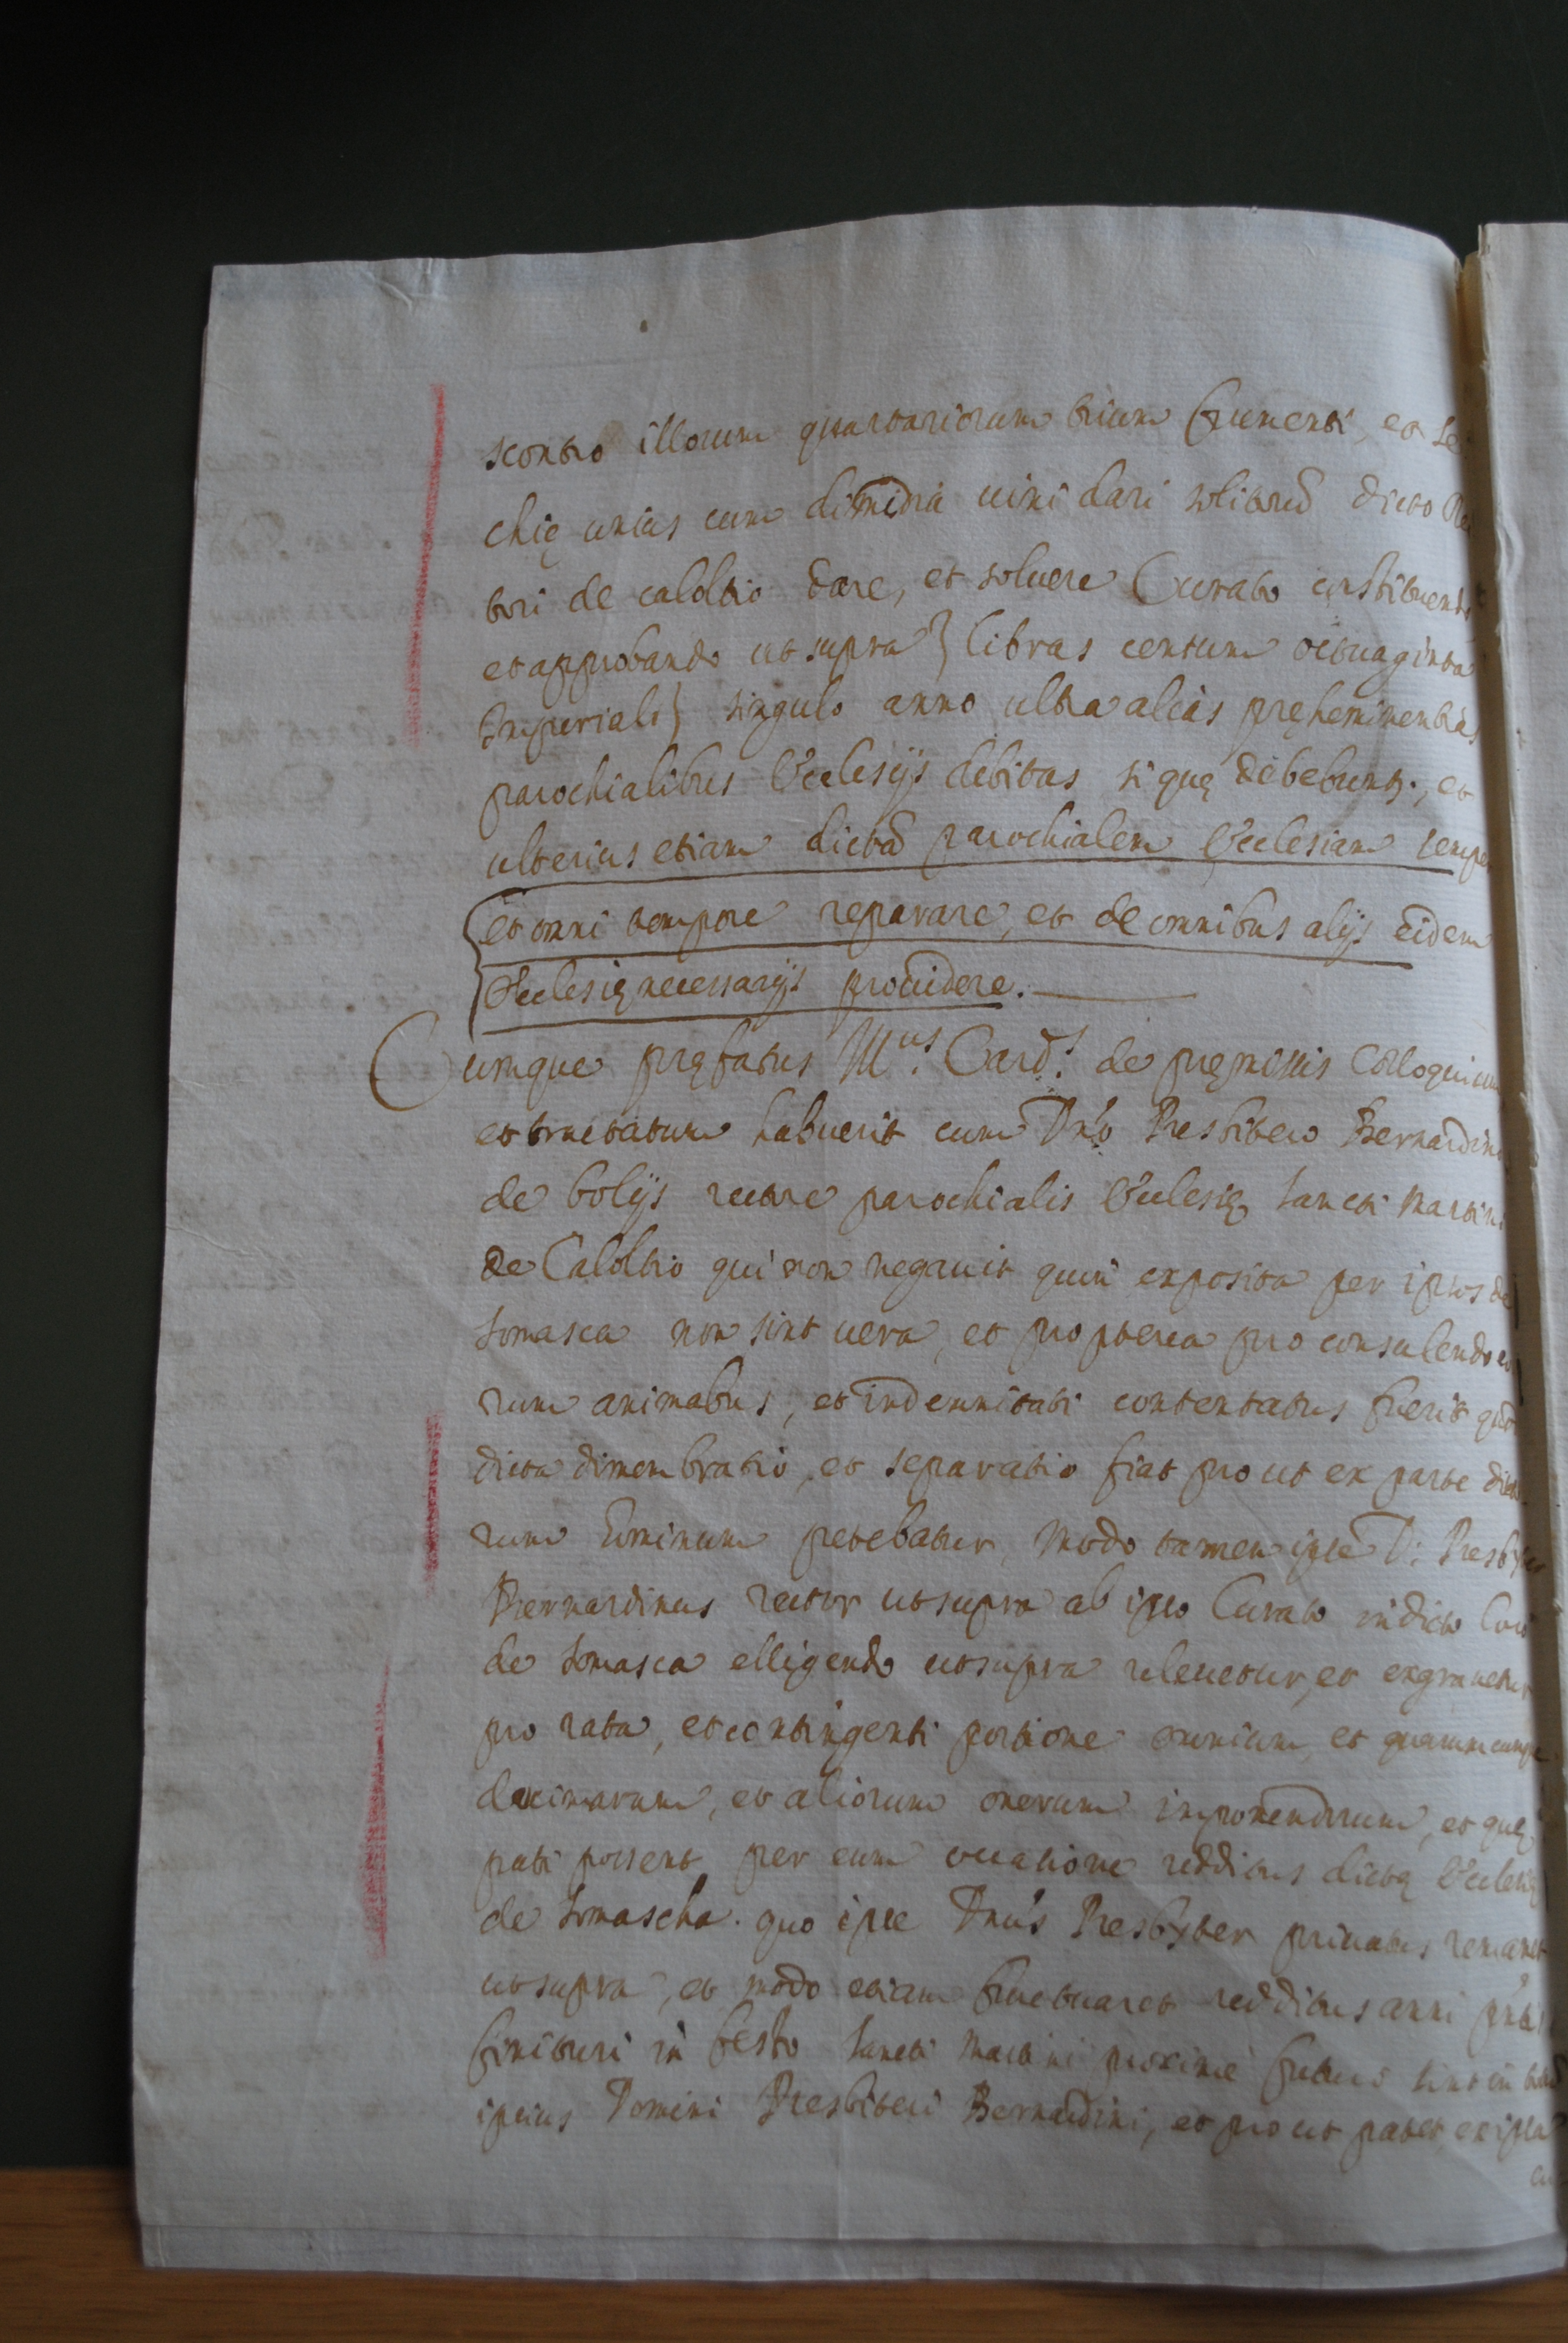 scontro illorum quartariorum trium frumenti, et se
chię unius cum dimidia uini dari solitarū dicto Re
tori de caloltio dare, et soluere Curato instituendo
et approbando ut supra} libras centum octuaginta
Imperiali} singulo anno ultra alias pręheminentias
parochialibus Ecclesijs debitas si quę debebunt., et
ulterius etiam dictā parochialem Ecclesiam semper
et omni tempore reparare, et de omnibus alijs eidem
Ecclesię necessarijs prouidere.
Cumque pręfatus Mus. Card.s de pręmissis Colloquium
et tractatum habuerit cum Dno Presbitero Bernardino
de bolijs rectore parochialis Ecclesię sancti Martini
de Caloltio qui non negauit quin exposita per ipsos de
Somasca non sint uera, et propterea pro consulendo eo
rum animabus, et indemnitati contentatus fuerit quod
dicta dimembratio, et separatio fiat prout ex parte dicto
rum hominum petebatur, modo tamen ipse D: Presbyter
Bernardinus rector ut supra ab ipso Curato in dicto loco
de Somasca elligendo ut supra releuetur, et exgrauetur
pro rata, et contingenti portione omnium, et quarumcumque
decimarum, et aliorum onerum imponendorum, et quę
pati posset per eum occasione redditus dictę Ecclesię
de Somascha. quo ipse Dnus Presbyter priuatus remanet
ut supra, et modo etiam fructuaret redditus anni pntis
finituri in festo sancti Martini proxime futuro sint in
ipsius Domini Presbiteri Bernardini, et prout patet ex ipsa